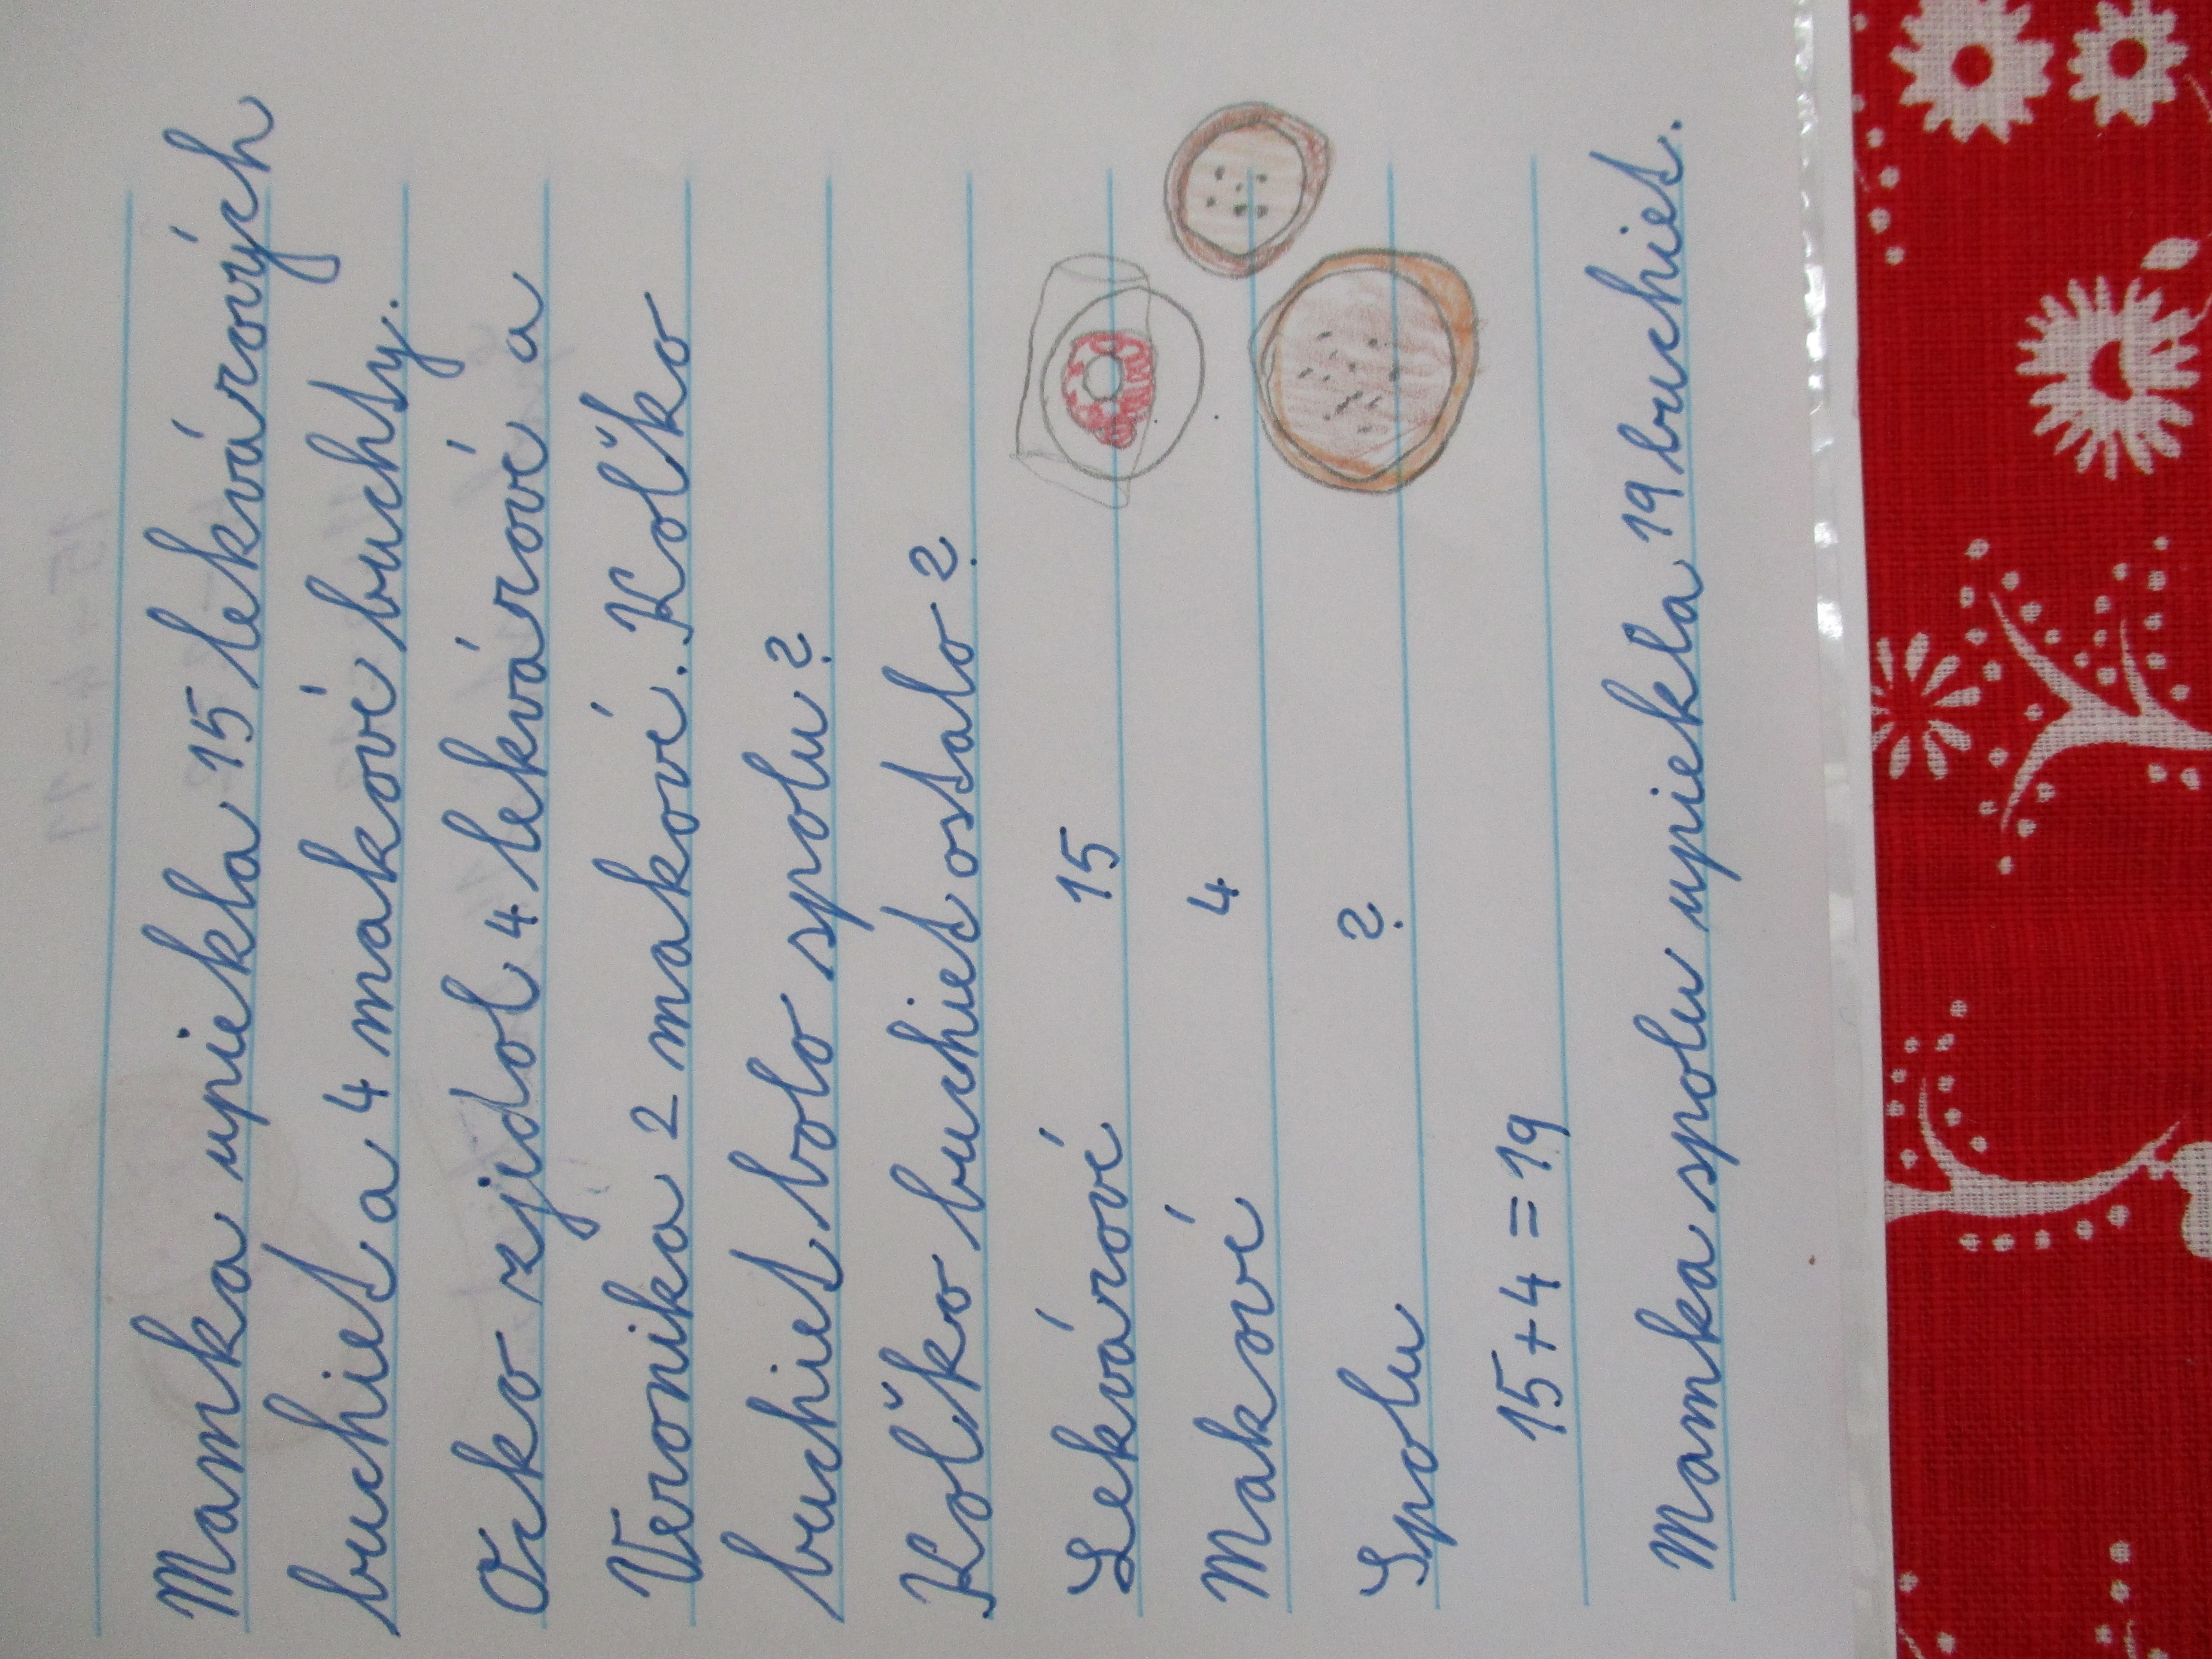 Mamka upiekla 15 lekvárových
buchiet a 4 makové buchty.
Ocko zjedol 4 lekvárové a
Veronika 2 makové. Koľko
buchiet bolo spolu?
Koľko buchiet ostalo?
Lekvárové 15
Makové 4
Spolu ?
15+4=19
Mamka spolu upiekla 19 buchiet.